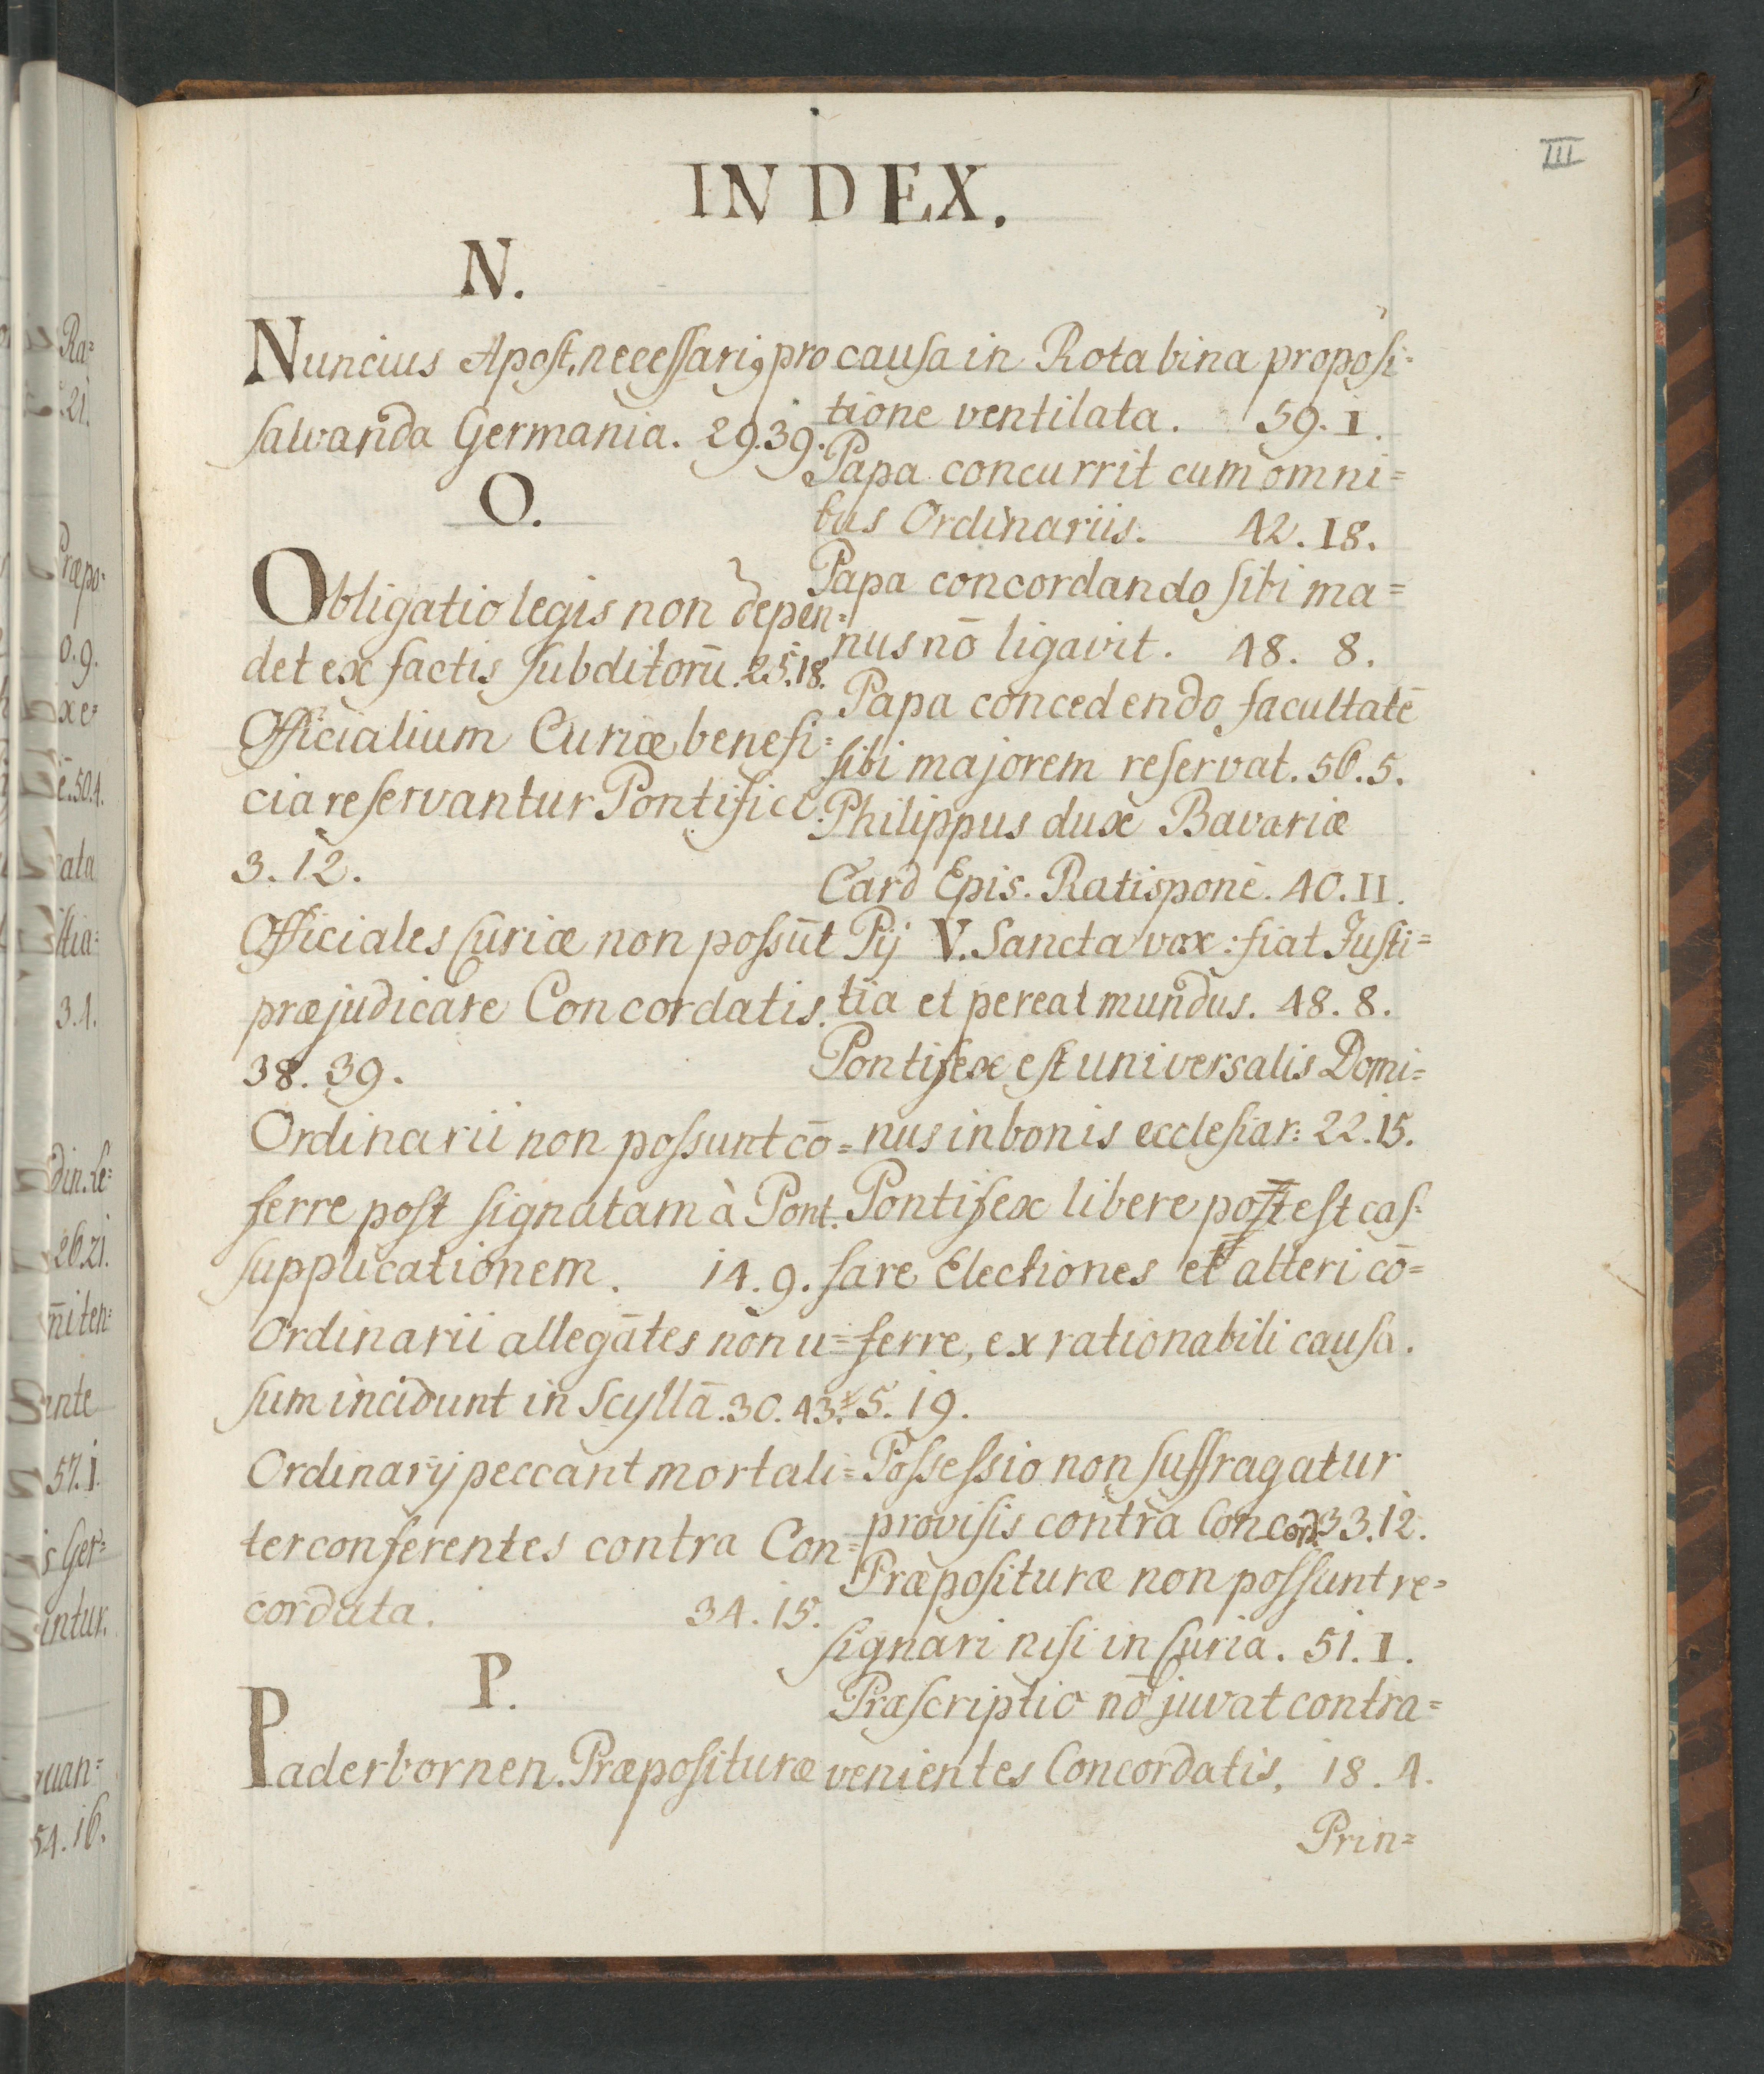 III
INDEX.
N.
Nuncius Apost, necessariꝰ pro
salvanda Germania. 29.39.
O.
Obligatio legis non depen=
det ex factis subditorū. 25.18.
Officialium Curiæ benefi=
cia reservantur Pontifici.
3.12.
Officiales Curiæ non possūt
præjudicare Concordatis.
38.39.
Ordinarii non possunt cō=
ferre post signatam à Pont.
supplicationem. 14.9.
Ordinarii allegātes non u=
sum incidunt in Scyllā. 30.43.
Ordinarij peccant mortali=
ter conferentes contra Con=
cordata. 34.15.
P.
Paderbornen. Præposituræ
causa in Rota bina proposi=
tione ventilata. 59.I.
Papa concurrit cum omni=
bus Ordinariis. 42.18.
Papa concordando sibi ma=
nus nō ligavit. 48. 8.
Papa concedendo facultatē
sibi majorem reservat. 56.5.
Philippus dux Bavariæ
Card Epis. Ratisponē. 40.II.
Pij V. Sancta vox: fiat Justi=
tia et pereat mundus. 48.8.
Pontifex est universalis Domi=
nus in bonis ecclesiar: 22.15.
Pontifex libere potest cas=
sare Electiones et alteri cō=
ferre, ex rationabili causa.
5.19.
Possessio non suffragatur
provisis contra Concord. 33.12.
Præposituræ non possunt re=
signari nisi in Curia. 51.I.
Præscriptio nō juvat contra=
venientes Concordatis. 18.4.
Prin=